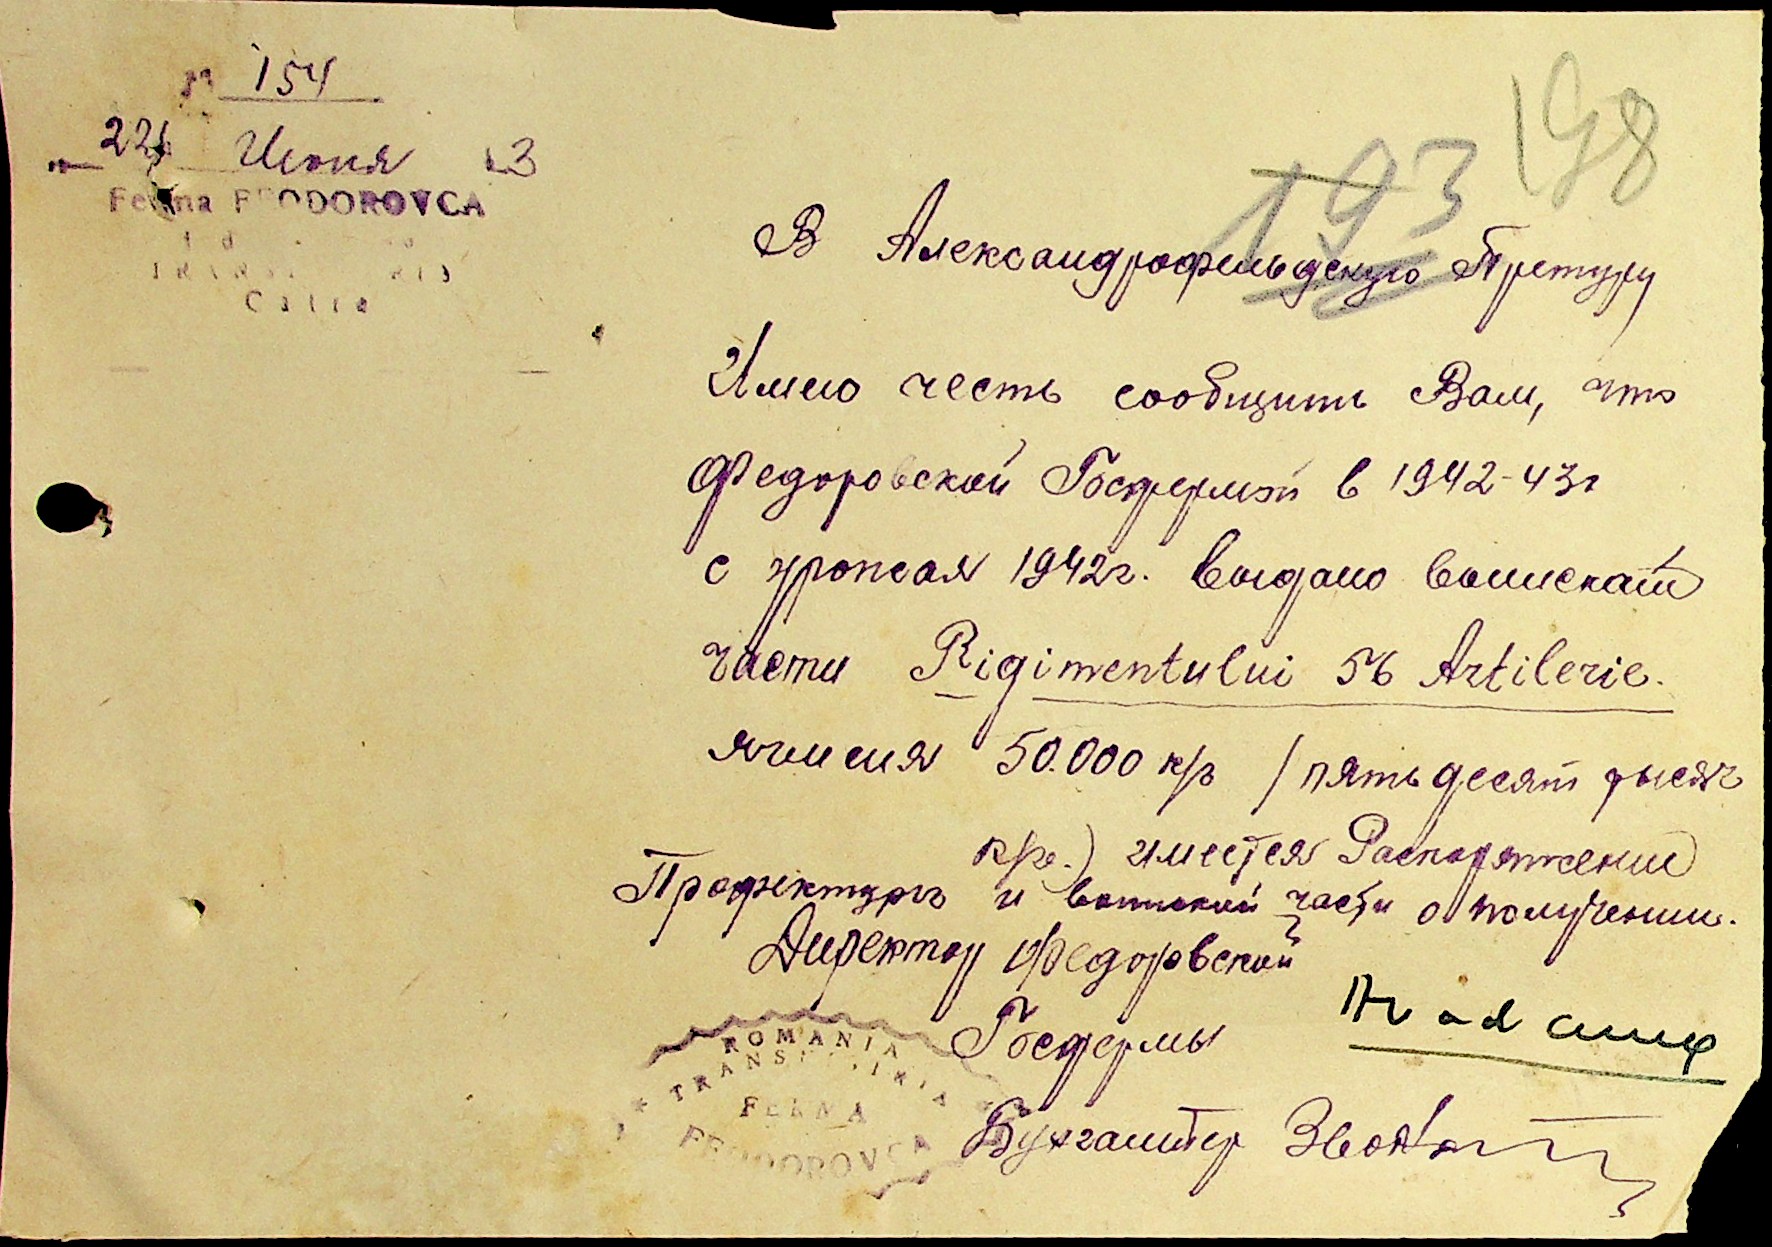 № 154
22 Июня 43
Ferma FEODOROVCA
198
193
В Александрофельдскую Претуру
Имею честь сообщить Вам, что
Федоровской Госфермой в 1942-43г
с урожая 1942г. выдано воинской
части Rigimentului 56 Artilerie.
ячменя 50.000 кгр /пятьдесят тысяч
кгр.) имеется Распоряжение
Профектуры и воинской части о получении.
Директор Федоровской
Госфермы
Бухгалтер
ROMANIA
TRANSNISTRIA
FERMA
FEODOROVCA